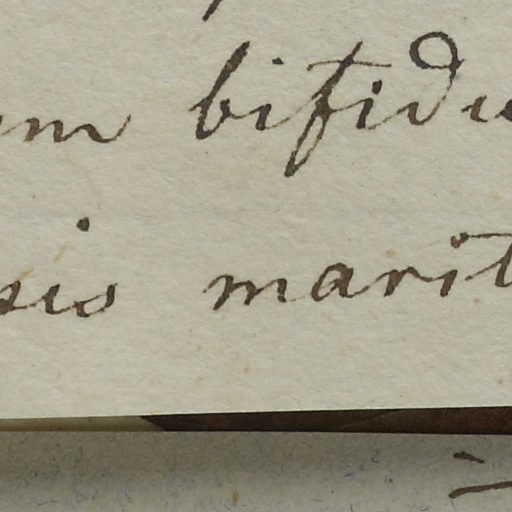 um bifidu
sis marit